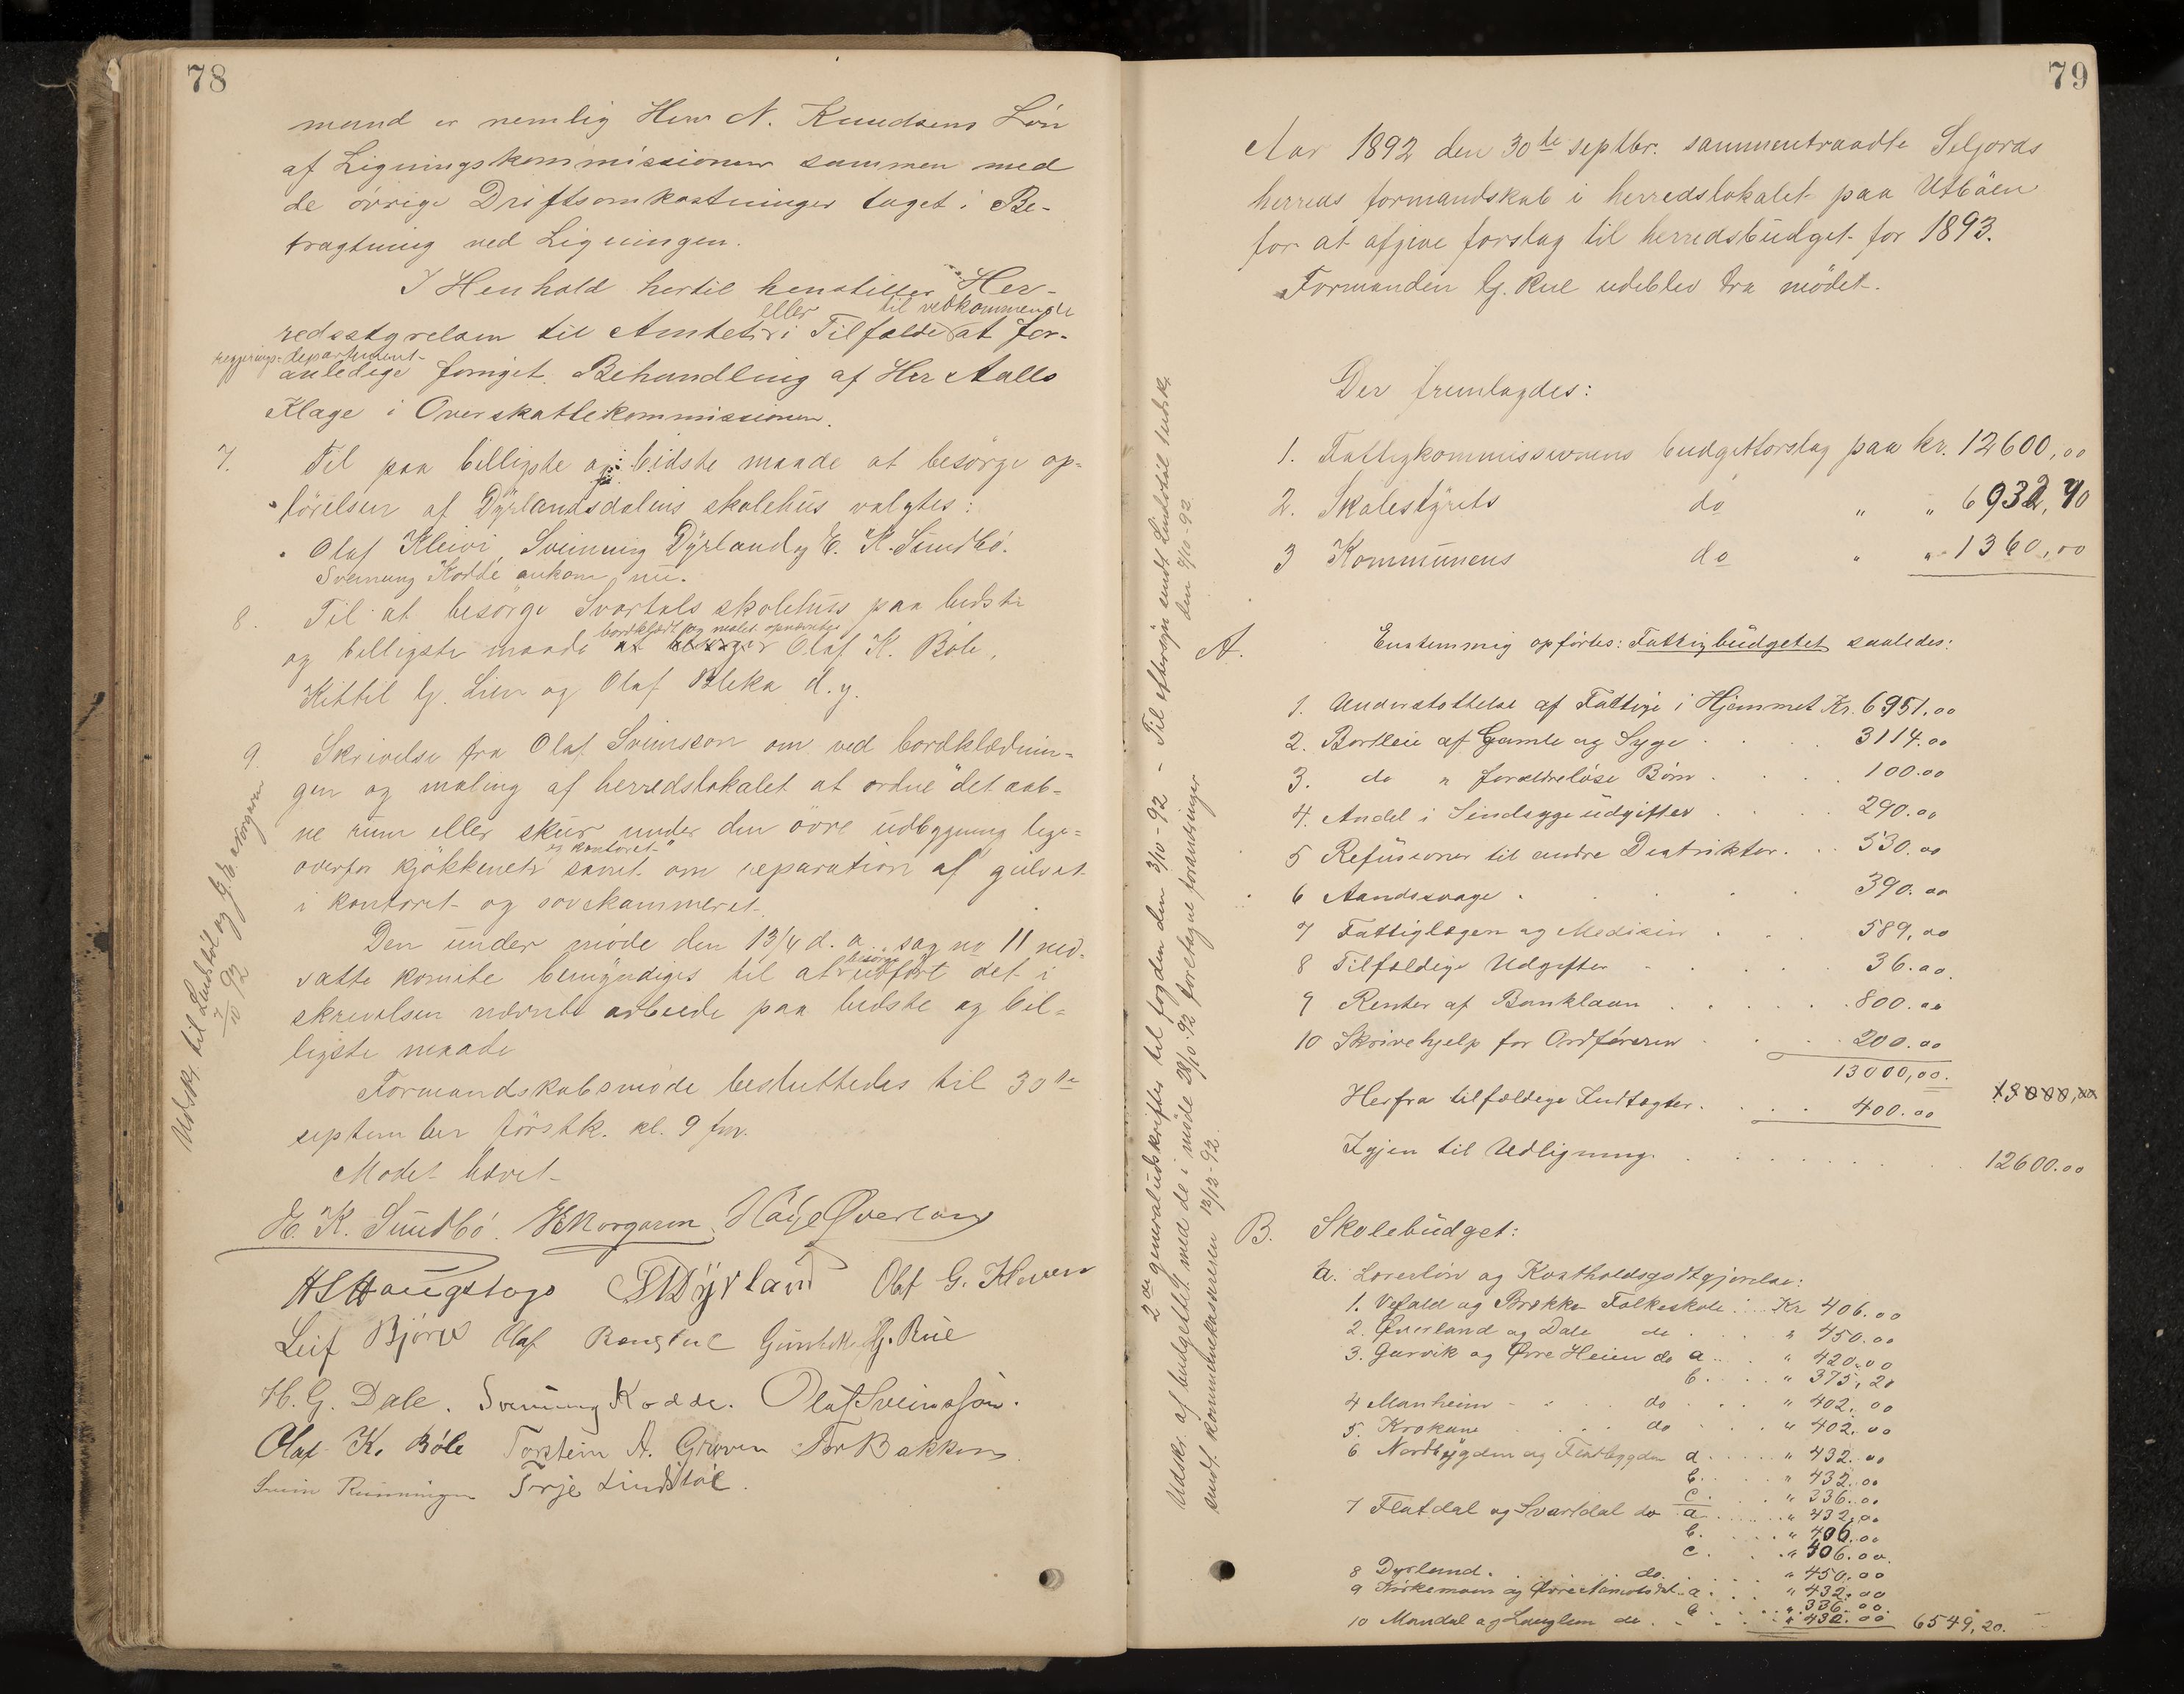 78
mand er nemlig Herr N. Knudsens Løn
af Ligningskommissionen sammen med
de øvrige Driftsomkostninger taget i Be-
tragtning ved Ligningen.
I Henhold hertil henstiller Her-
eller til vedkommende
redsstyrelsen til Amtet i Tilfælde at for-
regjerings-departement
anledige fornyet Behandling af Her Aalls
Klage i Overskattekommissionen.
7. Til paa billigste og bedste maade at besørge op-
førelsen af Dyrlandsdalens skolehus valgtes:
Olaf Kleivi, Sveinung Dyrland og E. K. Sundbö.
Sveinung Kodde ankom nu.
8. Til at besørge Svartdals skolehus paa bedste
bordklædt og malet opnævntes
og billigste maade at besørger Olaf K. Böle,
Kittil G. Lien og Olaf Bleka d.y.
9. Skrivelse fra Olaf Sveinsson om ved bordklædnin-
gen og maling af herredslokalet at ordne "det aab-
ne rum eller skur under den øvre udbygning lige-
og kontoret"
overfor kjøkkenet samt om reparation af gulvet
i kontoret og sovekammeret.
Den under møde den 13/4 d. a. sag no 11 ned-
besørge
satte komite bemyndiges til at udført det i
skrivelsen nævnte arbeide paa bedste og bil-
ligste maade
Formandskabsmøde besluttedes til 30te
september förstk. kl. 9 fm.
Mødet hævet
Udskr. til Lindstöl og G. E. Norgaren
7/10 92
E. K. Sundbö. Norgaren Hage Øverland
HS Haugstoga S Dyrland Olaf G. Kleven
Leif Björes Olaf Rongstul Gunleik G. Rue
H. G. Dale. Sveinung Kodde. Olaf Sveinsson.
Olaf K. Böle Torstein A. Graven Tor Bakken
Svein Rünningen Terje Lindstöl.
2de generaludskrifter til fogden den 3/10-92 - Til eftersyn sendt Lindstöl udskr. den 9/10-92.
Udskr. af budgettet med de i møde 28/10 92 foretagne forandringer
sendt kommunekasereren 13/12-92.
79
Aar 1892 den 30te septbr. sammentraadte Seljords
herreds formandskab i herredslokalet paa Utböen
for at afgive forslag til herredsbudget for 1893.
Formanden G. Rue udeblev fra mødet.
Der fremlagdes:
1. Fattigkommissionens budgetforslag paa kr. 12600,00
2. Skolestyrets do " " 6932,70
3 Kommunens do " " 1360,00
A. Enstemmig opførtes: Fattigbudgetet saaledes:
1. Understøttelse af Fattige i Hjemmet Kr. 6951.00
2. Bortleie af Gamle og Syge 3114.00
3. do " forældreløse Børn 100.00
4. Andel i Sindsygeudgifter 290.00
5 Refusioner til andre Distrikter 530.00
6 Aandssvage 390.00
7 Fattiglægen og Medicin 589,00
8 Tilfældige Udgifter 36.00
9 Renter af Banklaan 800.00
10 Skrivehjelp for Ordføreren 200.00
13000,00.
Herfra tilfældige Indtægter 400.00 13000,00
Igjen til Udligning 12600.00
B. Skolebudget:
a. Lærerløn og Kostholdsgodtgjørelse:
1. Vefald og Brække Folkeskole Kr 406.00
2. Øverland og Dale do " 450.00
3. Garvik og Øvre Heien do a " 420.00
b. " 375,20
4 Manheim do " 402.00
5. Krokane do " 402.00
6 Nordbygden og Flatbygden a " 432.00
b. " 432.00
c. " 336.00
7 Flatdal og Svartdal do a " 432.00
b. " 406.00
c. " 406.00
8 Dyrland. do. " 450.00
9 Kirkemoen og Øvre Aamotsdal a. " 432.00
b " 336.00
10 Mandal og Langlim do " 432.00 6549,20.